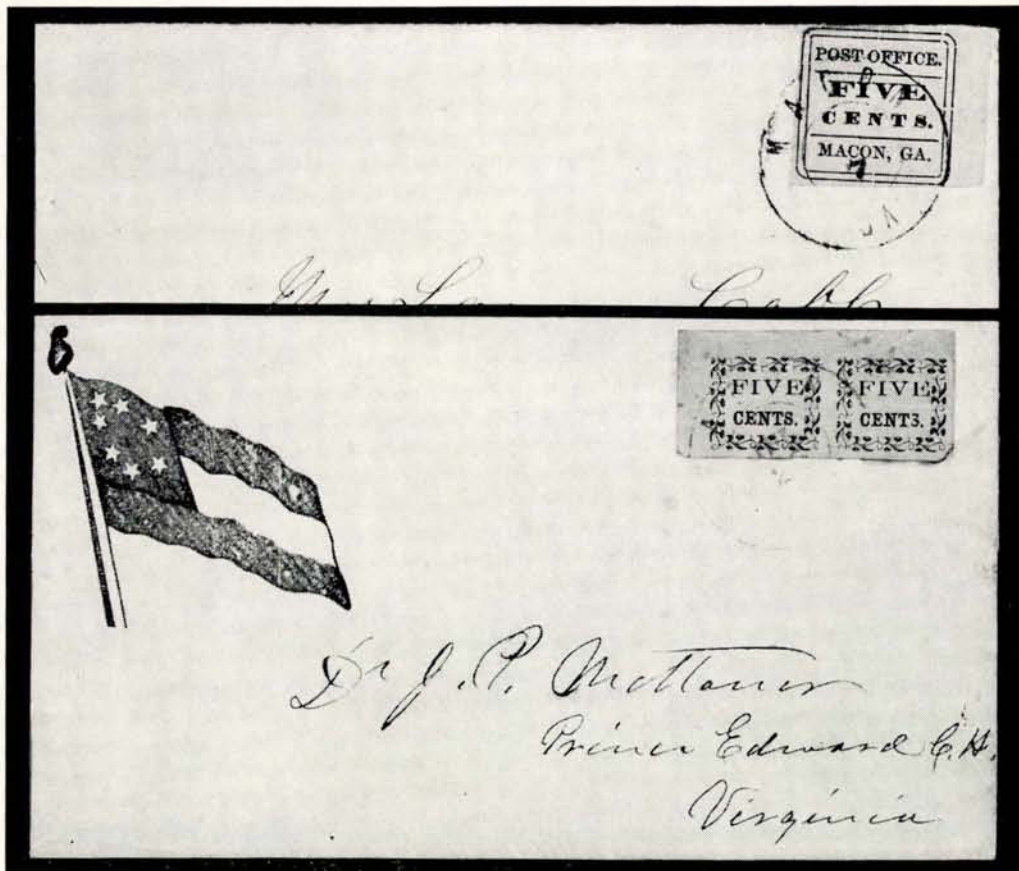 POST OFFICE.
FIVE
CENTS.
MACON, GA.
MACON
7
GA
FIVE
CENTS.
FIVE
CENT3.
Dr J. P. Mettauer
Prince Edward C. H.
Virginia